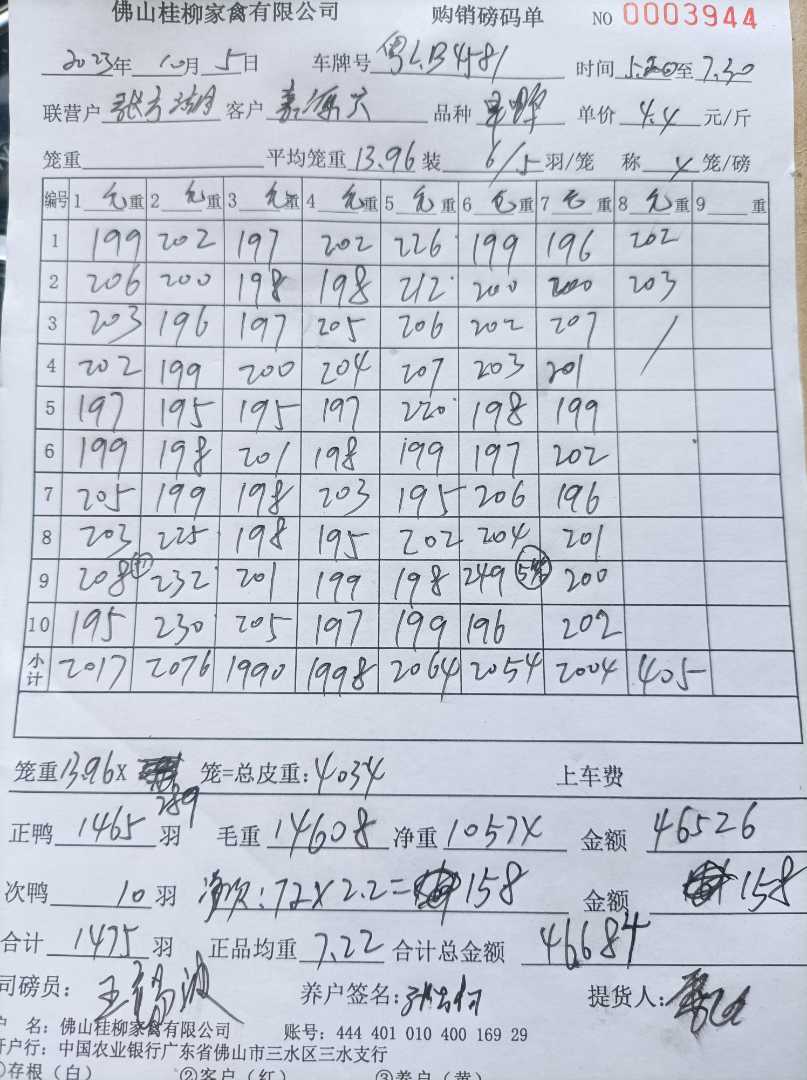 佛山桂柳家禽有限公司 购销磅码单 NO 0003944
2023年 10月 5日 车牌号 粤L.B4581 时间 至7.30
联营户 客户 品种 单价 4.4 元/斤
笼重 平均笼重 13.96 装 6/5 羽/笼 称 4 笼/磅
编号 1 毛重 2 毛重 3 毛重 4 毛重 5 毛重 6 毛重 7 毛重 8 毛重 9 重
1 199 202 197 202 226 199 196 202
2 206 200 198 198 212 200 200 203
3 203 196 197 205 206 202 207 /
4 202 199 200 204 207 203 201
5 197 195 195 197 220 198 199
6 199 198 201 198 199 197 202
7 205 199 198 203 195 206 196
8 203 225 198 195 202 204 201
9 208 232 201 199 198 249 200
10 195 230 205 197 199 196 202
小计 2017 2076 1990 1998 2064 2054 2004 405
笼重 13.96X 289 笼=总皮重: 4034 上车费
正鸭 1465 羽 毛重 14608 净重 10574 金额 46526
次鸭 10 羽 净次: 72X2.2= 158 金额 158
合计 1475 羽 正品均重 7.22 合计总金额 46684
司磅员: 王 波 养户签名: 提货人:
户 名: 佛山桂柳家禽有限公司 账号: 444 401 010 400 169 29
开户行: 中国农业银行广东省佛山市三水区三水支行
①存根（白） ②客户（红） ③养户（黄）